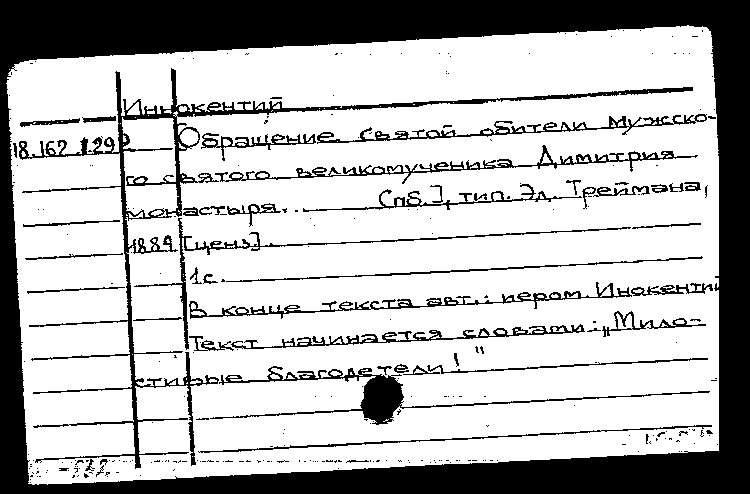 Иннокентий
18.162.1.29 Обращение святой обители мужско-
го святого великомученика Димитрия
монастыря... Спб.], тип. Эд. Треймана,
1884 [ценз].
1с.
В конце текста авт.: иером. Инокентий
Текст начинается словами: „Мило-
стивые благодетели!"